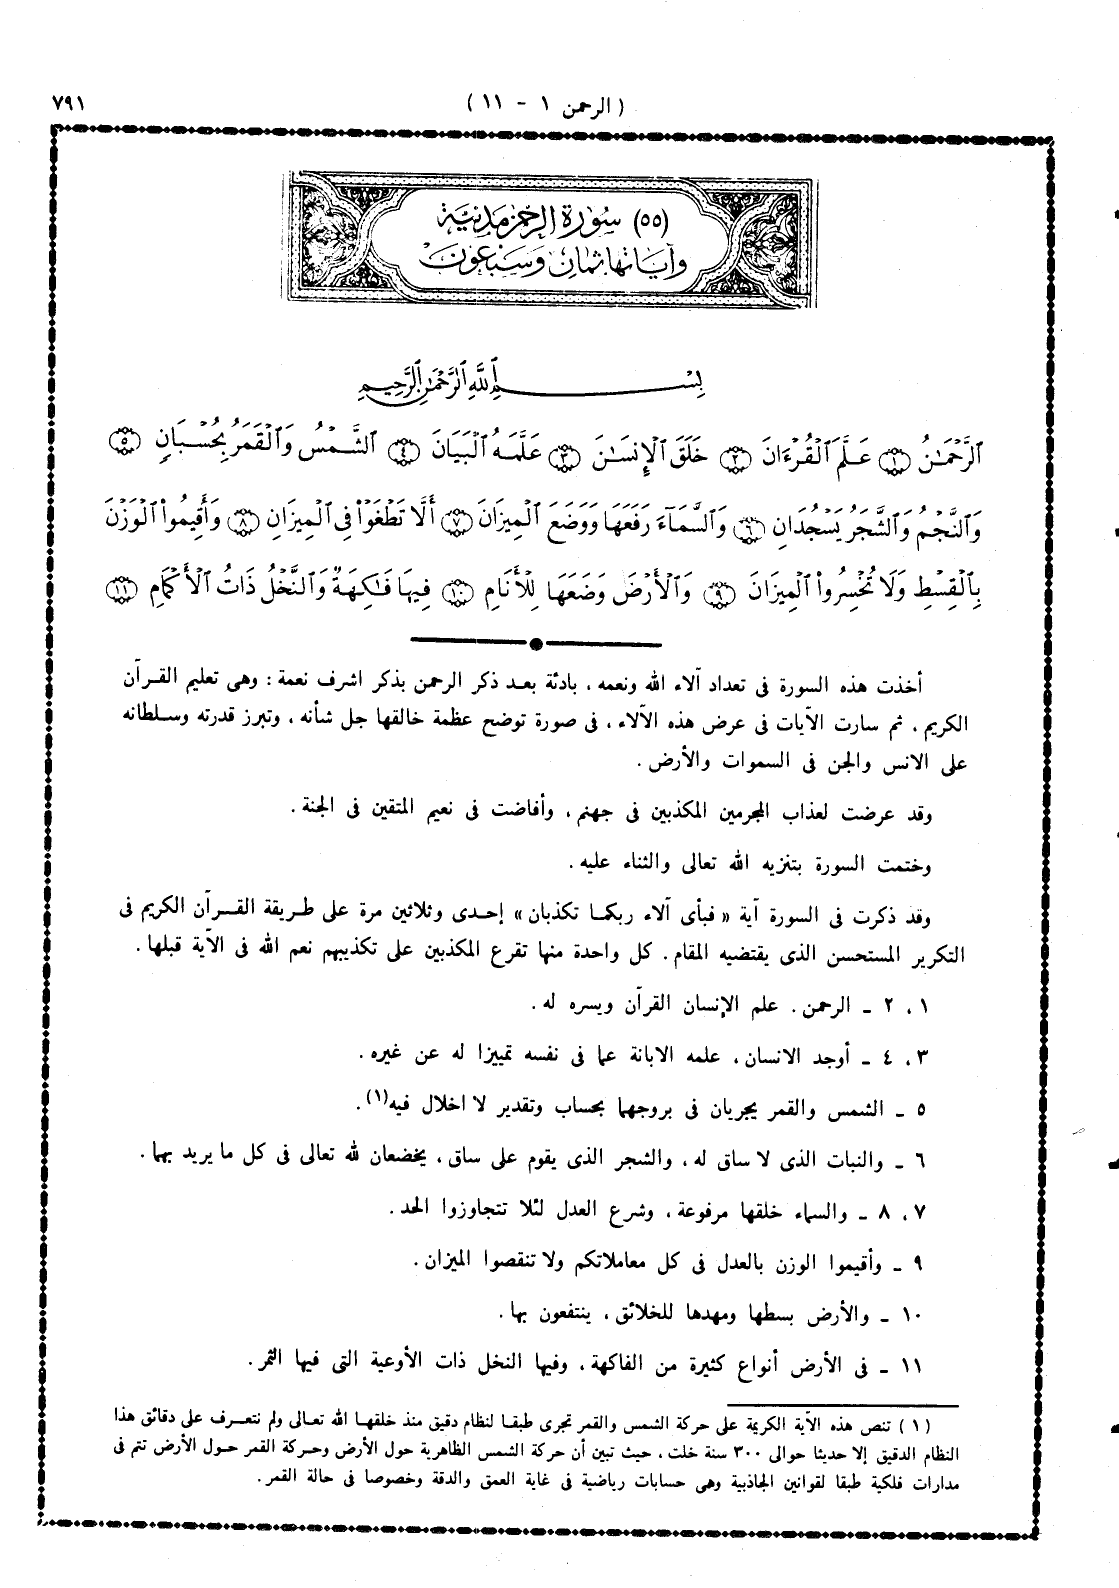 ( الرحمن ١ - ١١ )
٧٩١
(٥٥) سُورَة الرحمن مَدنيَّة
وآيَاتها ثمَان وَسَبعُون
بِسْـــمِ ٱللَّهِ ٱلرَّحْمَٰنِ ٱلرَّحِيمِ
ٱلرَّحْمَٰنُ ١ عَلَّمَ ٱلْقُرْءَانَ ٢ خَلَقَ ٱلْإِنسَٰنَ ٣ عَلَّمَهُ ٱلْبَيَانَ ٤ ٱلشَّمْسُ وَٱلْقَمَرُ بِحُسْبَانٍ ٥
وَٱلنَّجْمُ وَٱلشَّجَرُ يَسْجُدَانِ ٦ وَٱلسَّمَآءَ رَفَعَهَا وَوَضَعَ ٱلْمِيزَانَ ٧ أَلَّا تَطْغَوْا۟ فِى ٱلْمِيزَانِ ٨ وَأَقِيمُوا۟ ٱلْوَزْنَ
بِٱلْقِسْطِ وَلَا تُخْسِرُوا۟ ٱلْمِيزَانَ ٩ وَٱلْأَرْضَ وَضَعَهَا لِلْأَنَامِ ١٠ فِيهَا فَٰكِهَةٌ وَٱلنَّخْلُ ذَاتُ ٱلْأَكْمَامِ ١١
أخذت هذه السورة فى تعداد آلاء الله ونعمه ، بادئة بعد ذكر الرحمن بذكر اشرف نعمة : وهى تعليم القرآن
الكريم ، ثم سارت الآيات فى عرض هذه الآلاء ، فى صورة توضح عظمة خالقها جل شأنه ، وتبرز قدرته وسلطانه
على الانس والجن فى السموات والأرض .
وقد عرضت لعذاب المجرمين المكذبين فى جهنم ، وأفاضت فى نعيم المتقين فى الجنة .
وختمت السورة بتنزيه الله تعالى والثناء عليه .
وقد ذكرت فى السورة آية « فبأى آلاء ربكما تكذبان » إحدى وثلاثين مرة على طريقة القرآن الكريم فى
التكرير المستحسن الذى يقتضيه المقام . كل واحدة منها تقرع المكذبين على تكذيبهم نعم الله فى الآية قبلها .
١ ، ٢ ـ الرحمن . علم الإنسان القرآن ويسره له .
٣ ، ٤ ـ أوجد الانسان ، علمه الابانة عما فى نفسه تمييزا له عن غيره .
٥ ـ الشمس والقمر يجريان فى بروجهما بحساب وتقدير لا اخلال فيه(١) .
٦ ـ والنبات الذى لا ساق له ، والشجر الذى يقوم على ساق ، يخضعان لله تعالى فى كل ما يريد بهما .
٧ ، ٨ ـ والسماء خلقها مرفوعة ، وشرع العدل لئلا تتجاوزوا الحد .
٩ ـ وأقيموا الوزن بالعدل فى كل معاملاتكم ولا تنقصوا الميزان .
١٠ ـ والأرض بسطها ومهدها للخلائق ، ينتفعون بها .
١١ ـ فى الأرض أنواع كثيرة من الفاكهة ، وفيها النخل ذات الأوعية التى فيها الثمر .
( ١ ) تنص هذه الآية الكريمة على حركة الشمس والقمر تجرى طبقا لنظام دقيق منذ خلقها الله تعالى ولم نتعرف على دقائق هذا
النظام الدقيق إلا حديثا حوالى ٣٠٠ سنة خلت ، حيث تبين أن حركة الشمس الظاهرية حول الأرض وحركة القمر حول الأرض تتم فى
مدارات فلكية طبقا لقوانين الجاذبية وهى حسابات رياضية فى غاية العمق والدقة وخصوصا فى حالة القمر .